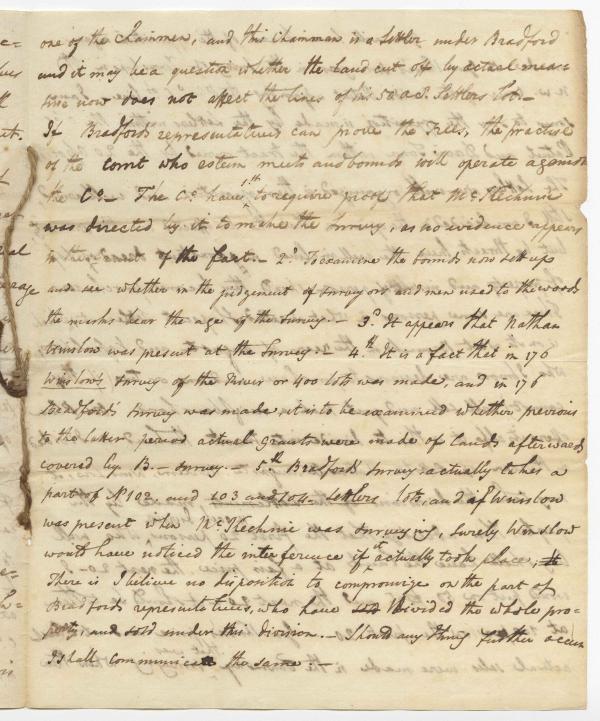 one of the Chainmen, and this Chainman is a Settler under Bradford
and it may be a question whether the land cut off by actual mea-
sure now does not affect the lines of his 50 acs. Settlers lot.—
If Bradford's representatives can prove the trees, the practise
of the court who esteem meets and bounds will operate against
the Co.— The Co. have, 1st, to require proof that McKechnie
was directed by it to make the Survey, as no evidence appears
in the of the fact.— 2d. To examine the bounds now set up
and see whether in the judgement of surveyors and men used to the woods
the marks bear the age of the Survey.— 3d. It appears that Nathan
Winslow was present at the Survey.— 4.th It is a fact that in 176
Winslow's survey of the River or 400 lots was made, and in 176
Bradford's survey was made, it is to be examined whether previous
to the later period actual grants were made of lands afterwards
covered by B.— survey.— 5.th Bradford's survey actually takes a
part of No 102. and 103 and 104. Settlers lots, and if Winslow
was present when McKechnie was surveying, surely Winslow
would have noticed the interference if it actually took place,
There is I believe no disposition to compromize on the part of
Bradford's representatives, who have divided the whole pro-
perty, and sold under this division.— Should any thing further occur
I shall communicate the same.—